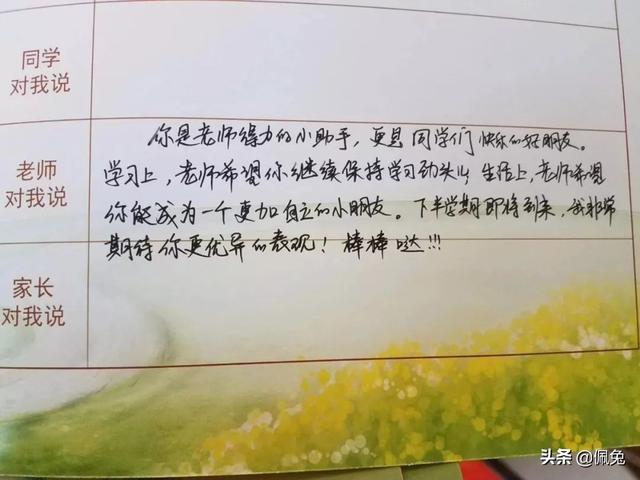 同学
对我说
你是老师得力的小助手，更是同学们快乐的好朋友。
老师
对我说
学习上，老师希望你继续保持学习劲头儿，生活上，老师希望
你能成为一个更加自立的小朋友。下半学期即将到来，我非常
期待你更优异的表现！棒棒哒!!!
家长
对我说
头条 @佩兔